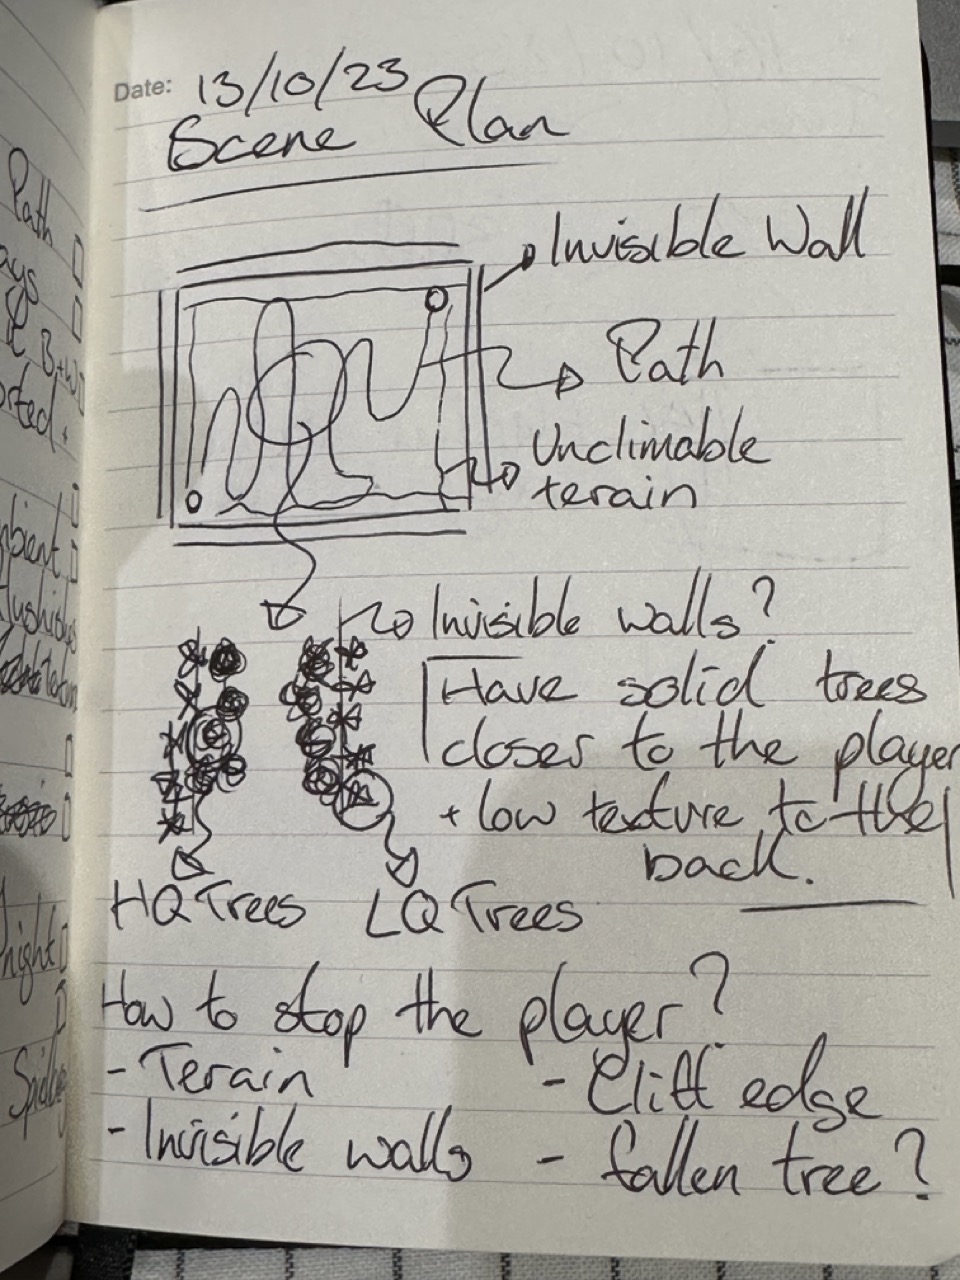 Date: 13/10/23
Scene Plan
Invisible Wall
Path
Unclimable
terain
Invisible walls?
Have solid trees
closer to the player
+ low texture to the
back.
HQ Trees LQ Trees
How to stop the player?
- Terain - Cliff edge
- Invisible walls - fallen tree?
Path
ays
B+W
orted
mbient
night